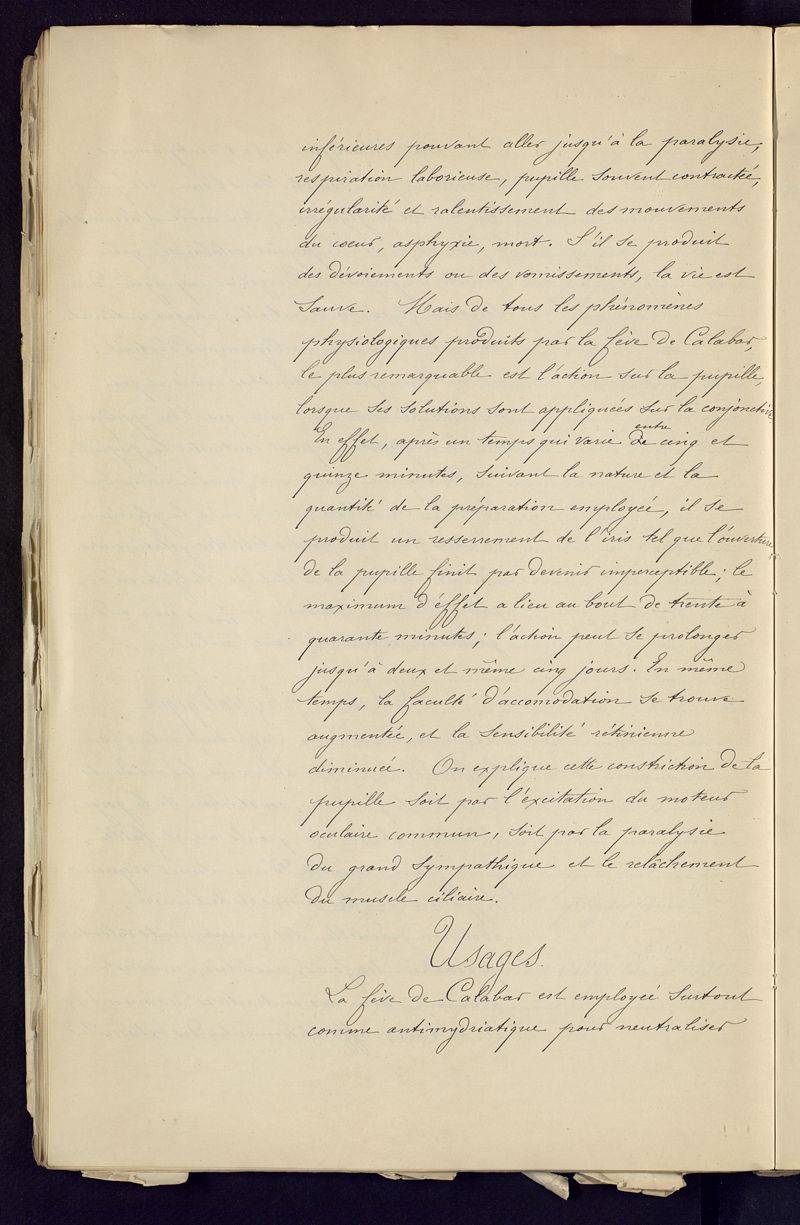 inférieures pouvant aller jusqu'à la paralysie,
respiration laborieuse, pupille souvent contractée,
irrégularité et ralentissement des mouvements
du cœur, asphyxie, mort. S'il se produit
des dévoiements ou des vomissements, la vie est
sauve. Mais de tous les phénomènes
physiologiques produits par la fève de Calabar,
le plus remarquable est l'action sur la pupille,
lorsque ses solutions sont appliquées sur la conjonctive.
En effet, après un temps qui varie de entre cinq et
quinze minutes, suivant la nature et la
quantité de la préparation employée, il se
produit un resserrement de l'iris tel que l'ouverture
de la pupille finit par devenir imperceptible; le
maximum d'éffet a lieu au bout de trente à
quarante minutes; l'action peut se prolonger
jusqu'à deux et même cinq jours. En même
temps, la faculté d'accomodation se trouve
augmentée, et la sensibilité rétinienne
diminuée. On explique cette constriction de la
pupille soit par l'éxcitation du moteur
oculaire commun, soit par la paralysie
du grand sympathique et le relâchement
du muscle ciliaire.
Usages.
La fève de Calabar est employée surtout
comme antimydriatique pour neutraliser